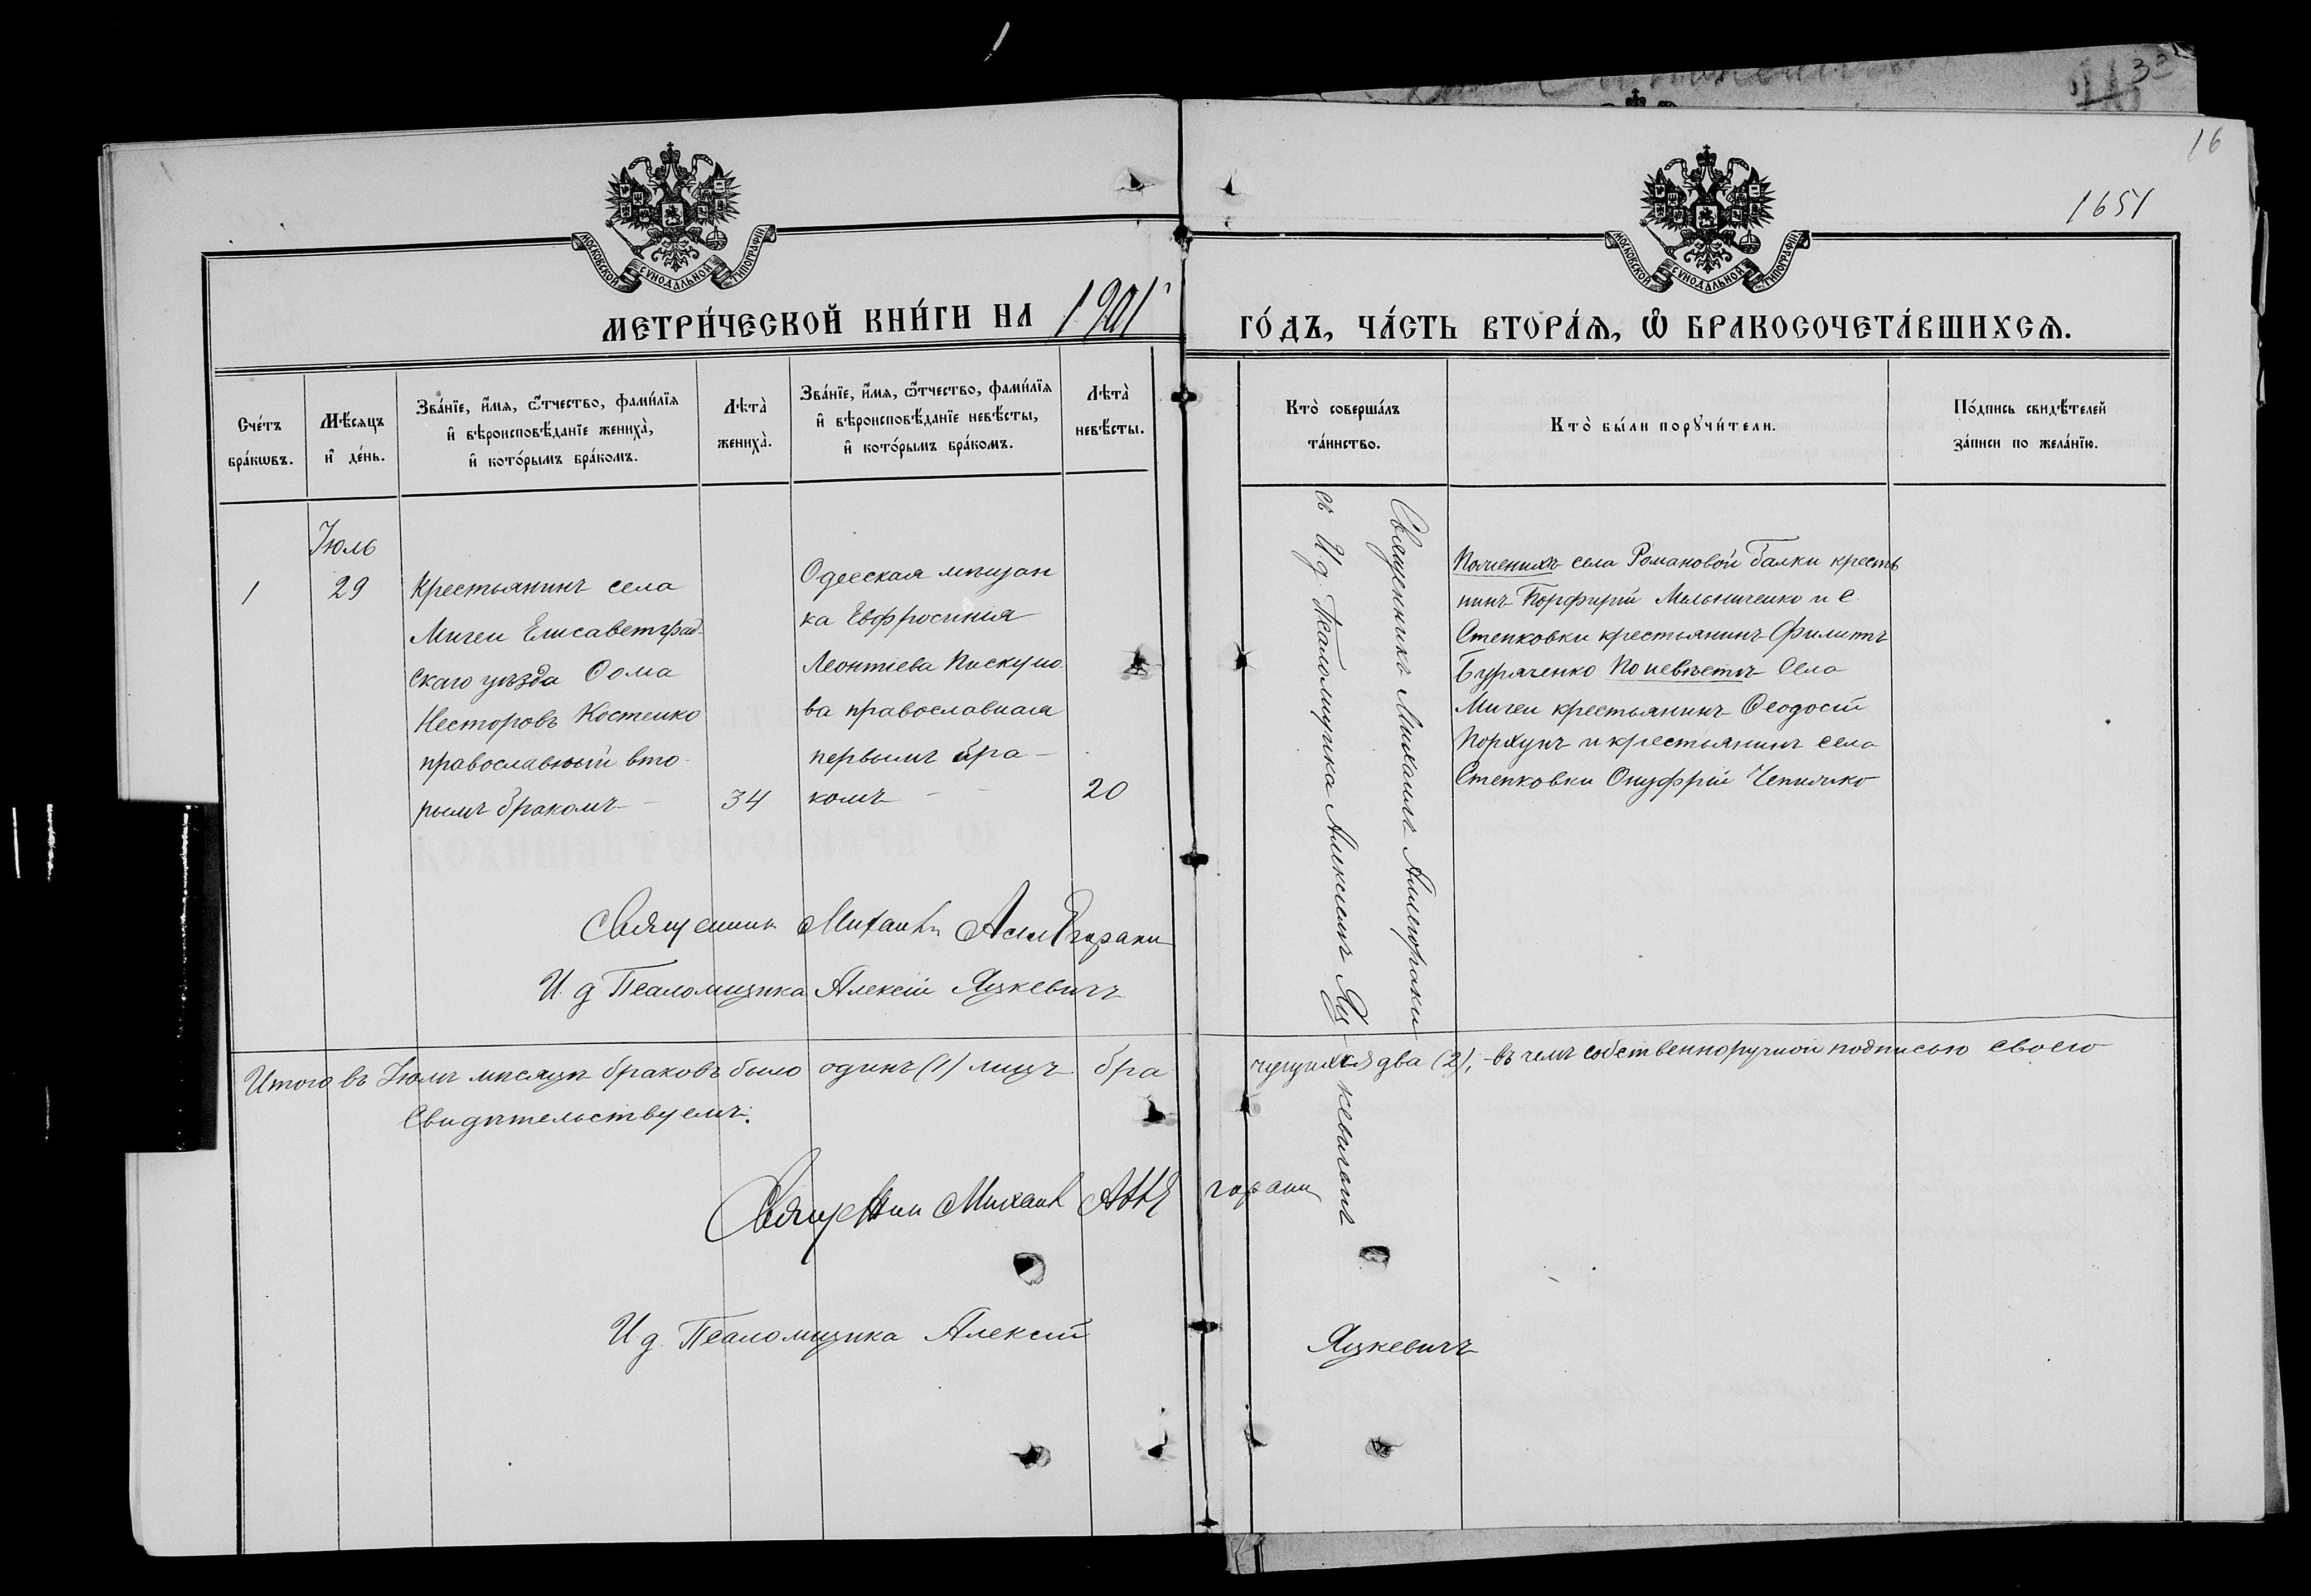 16
1651
МОСКОВСКОЙ СУНОДАЛЬНОЙ ТИПОГРАФІИ
МОСКОВСКОЙ СУНОДАЛЬНОЙ ТИПОГРАФІИ
МЕТРИ́ЧЕСКОЙ КНИ́ГИ НА 1901
ГО́ДЪ, ЧА́СТЬ ВТОРА́Я, Ѡ҆ БРАКОСОЧЕТА́ВШИХСЯ.
Сче́тъ
бра́кѡвъ.
Мѣ́сяцъ
и҆ де́нь.
Зва́нїе, и҆́мя, ѻ҆́тчество, фами́лїя
и҆ вѣроисповѣ́данїе жениха̀,
и҆ кото́рымъ бра́комъ.
Лѣта̀
жениха̀.
Зва́нїе, и҆́мя, ѻ҆́тчество, фами́лїя
и҆ вѣроисповѣ́данїе невѣ́сты,
и҆ кото́рымъ бра́комъ.
Лѣта̀
невѣ́сты.
Кто̀ соверша́лъ
та́инство.
Кто̀ бы́ли порꙋчи́тели.
По́дпись свидѣ́телей
за́писи по жела́нїю.
Іюль
1
29
Крестьянинъ села
Мигеи Елисаветград-
скаго уѣзда Ѳома
Несторовъ Костенко
православный вто-
рымъ бракомъ
34
Одесская мѣщан
ка Евфросинія
Леонтіева Пискуно
ва православная
первымъ бра-
комъ
20
Священникъ Михаилъ
съ И. д. Псаломщика Алексѣемъ Яцкевичемъ
По женихѣ села Романовой Балки кресть
нинъ Порфирій Мельниченко и с.
Степковки крестьянинъ Филиппъ
Буряченко По невѣстѣ Села
Мигеи крестьянинъ Ѳеодосій
Порхунъ и крестьянинъ села
Степковки Онуфрій
Священникъ Михаилъ
И. д. Псаломщика Алексій Яцкевичъ
Итого въ Іюлѣ мѣсяцѣ браковъ было одинъ (1) лицъ бра
чущихся два (2), въ чемъ собственноручной подписью своею
Свидѣтельствуемъ:
Священник Михаилъ
И д. Псаломщика Алексій Яцкевичъ